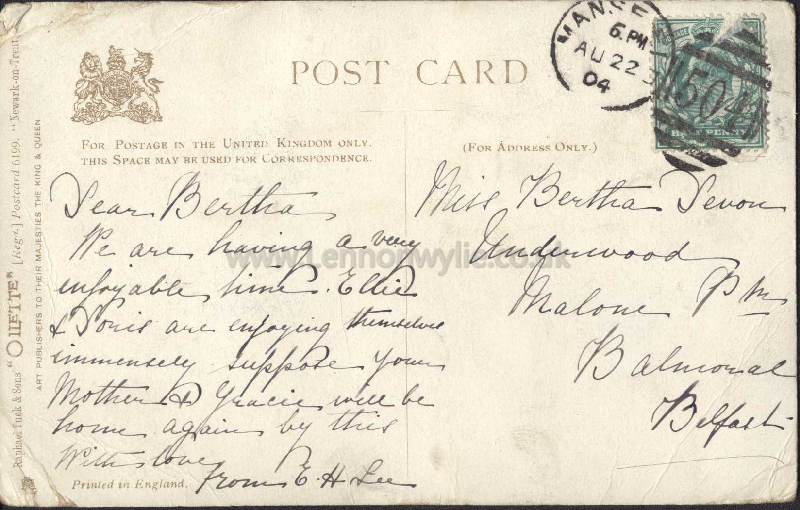 POST CARD
FOR POSTAGE IN THE UNITED KINGDOM ONLY.
THIS SPACE MAY BE USED FOR CORRESPONDENCE.
(FOR ADDRESS ONLY.)
Dear Bertha
We are having a very
enjoyable time. Ellie
& Doris are enjoying themselves
immensely suppose your
Mother & Gracie will be
home again by this
With love
from E. H. Lee
Miss Bertha Devon
Underwood
Malone Pk
Balmoral
Belfast
MANSE
6. PM
AU 22
04
504
HALFPENNY
Raphael Tuck & Sons' "OILETTE" [Regd.] Postcard 6199. "Newark-on-Trent
ART PUBLISHERS TO THEIR MAJESTIES THE KING & QUEEN
Printed in England.
www.Lennonwylie.co.uk